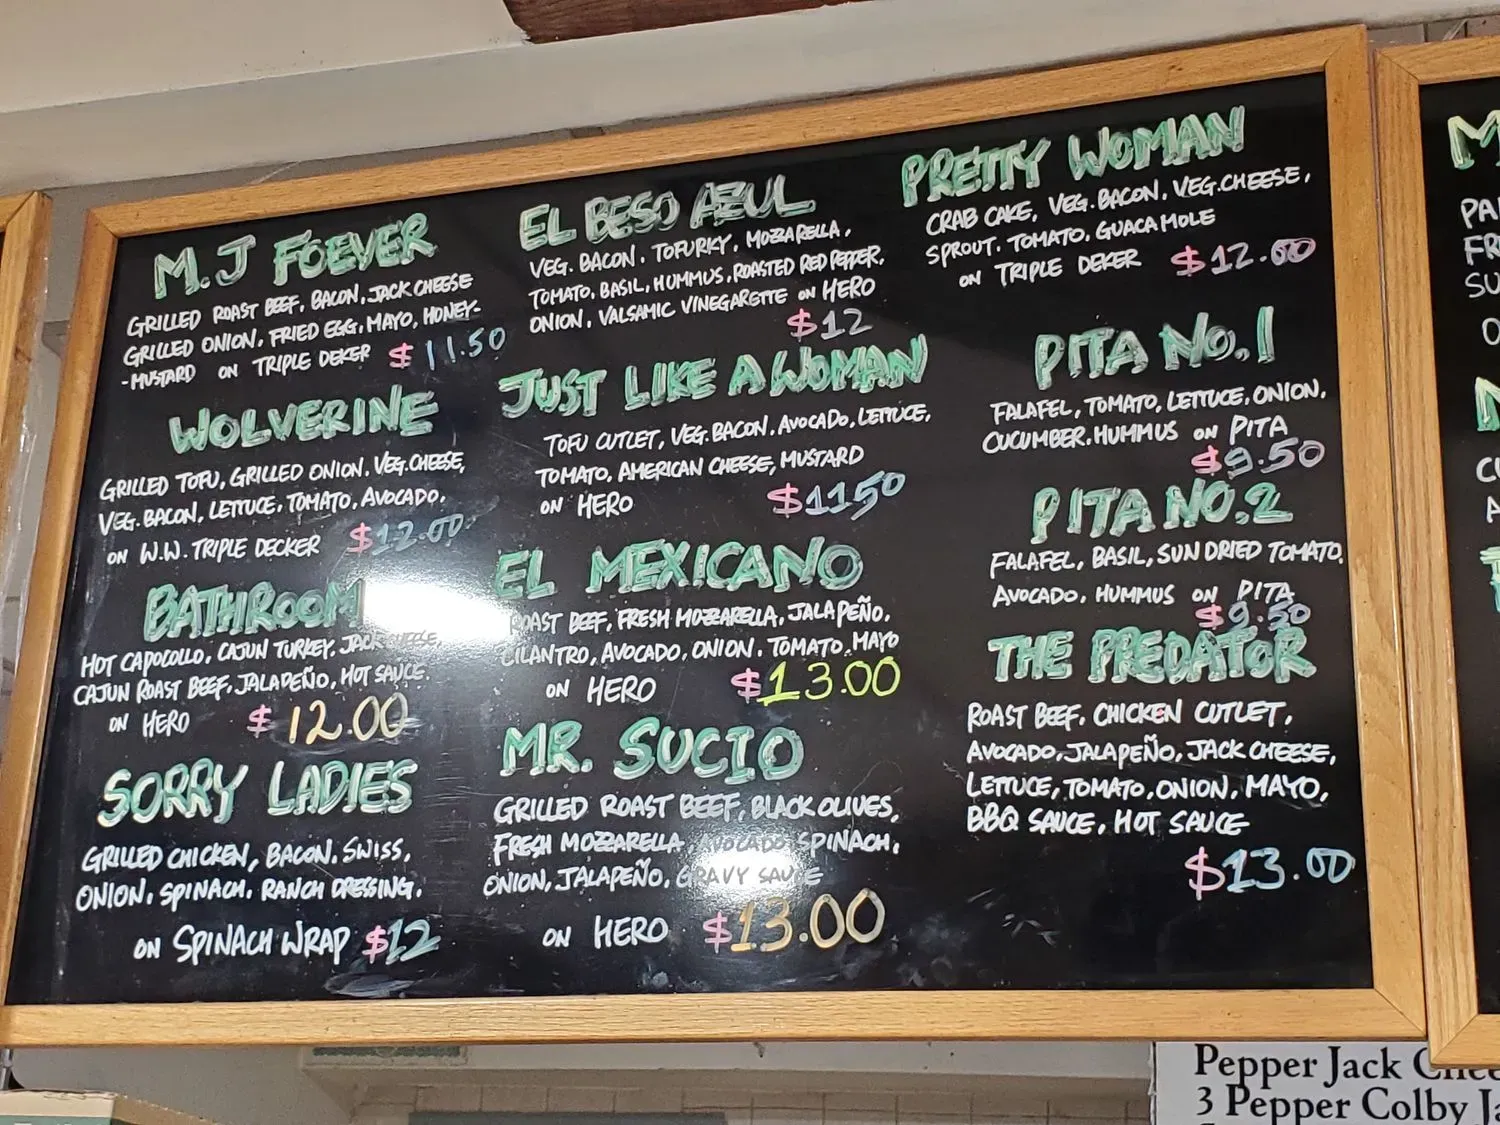 M.J FOEVER
GRILLED ROAST BEEF, BACON, JACK CHEESE
GRILLED ONION, FRIED EGG, MAYO, HONEY-
-MUSTARD ON TRIPLE DEKER $11.50
WOLVERINE
GRILLED TOFU, GRILLED ONION, VEG.CHEESE,
VEG. BACON, LETTUCE, TOMATO, AVOCADO,
ON W.W. TRIPLE DECKER $12.00
BATHROOM
HOT CAPOCOLLO, CAJUN TURKEY, JACK CHEESE,
CAJUN ROAST BEEF, JALAPEÑO, HOT SAUCE.
ON HERO $12.00
SORRY LADIES
GRILLED CHICKEN, BACON, SWISS,
ONION, SPINACH, RANCH DRESSING,
ON SPINACH WRAP $12
EL BESO AZUL
VEG. BACON, TOFURKY, MOZZARELLA,
TOMATO, BASIL, HUMMUS, ROASTED RED PEPPER,
ONION, VALSAMIC VINEGARETTE ON HERO
$12
JUST LIKE A WOMAN
TOFU CUTLET, VEG. BACON, AVOCADO, LETTUCE,
TOMATO, AMERICAN CHEESE, MUSTARD
ON HERO $11.50
EL MEXICANO
ROAST BEEF, FRESH MOZZARELLA, JALAPEÑO,
CILANTRO, AVOCADO, ONION, TOMATO, MAYO
ON HERO $13.00
MR. SUCIO
GRILLED ROAST BEEF, BLACK OLIVES,
FRESH MOZZARELLA, AVOCADO SPINACH,
ONION, JALAPEÑO, GRAVY SAUCE
ON HERO $13.00
PRETTY WOMAN
CRAB CAKE, VEG. BACON, VEG.CHEESE,
SPROUT, TOMATO, GUACAMOLE
ON TRIPLE DEKER $12.00
PITA No.1
FALAFEL, TOMATO, LETTUCE, ONION,
CUCUMBER, HUMMUS ON PITA
$9.50
PITA NO.2
FALAFEL, BASIL, SUN DRIED TOMATO,
AVOCADO, HUMMUS ON PITA
$9.50
THE PREDATOR
ROAST BEEF, CHICKEN CUTLET,
AVOCADO, JALAPEÑO, JACK CHEESE,
LETTUCE, TOMATO, ONION, MAYO,
BBQ SAUCE, HOT SAUCE
$13.00
Pepper Jack
3 Pepper Colby